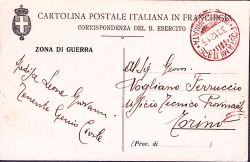 CARTOLINA POSTALE ITALIANA IN FRANCHIGIA
CORRISPONDENZA DEL R. ESERCITO
ZONA DI GUERRA
All Sig Geom.
Vogliano Ferruccio
Ufficio Tecnico Provinciale
Torino
(Prov. di)
Leone Giovanni
Tenente Genio Civile